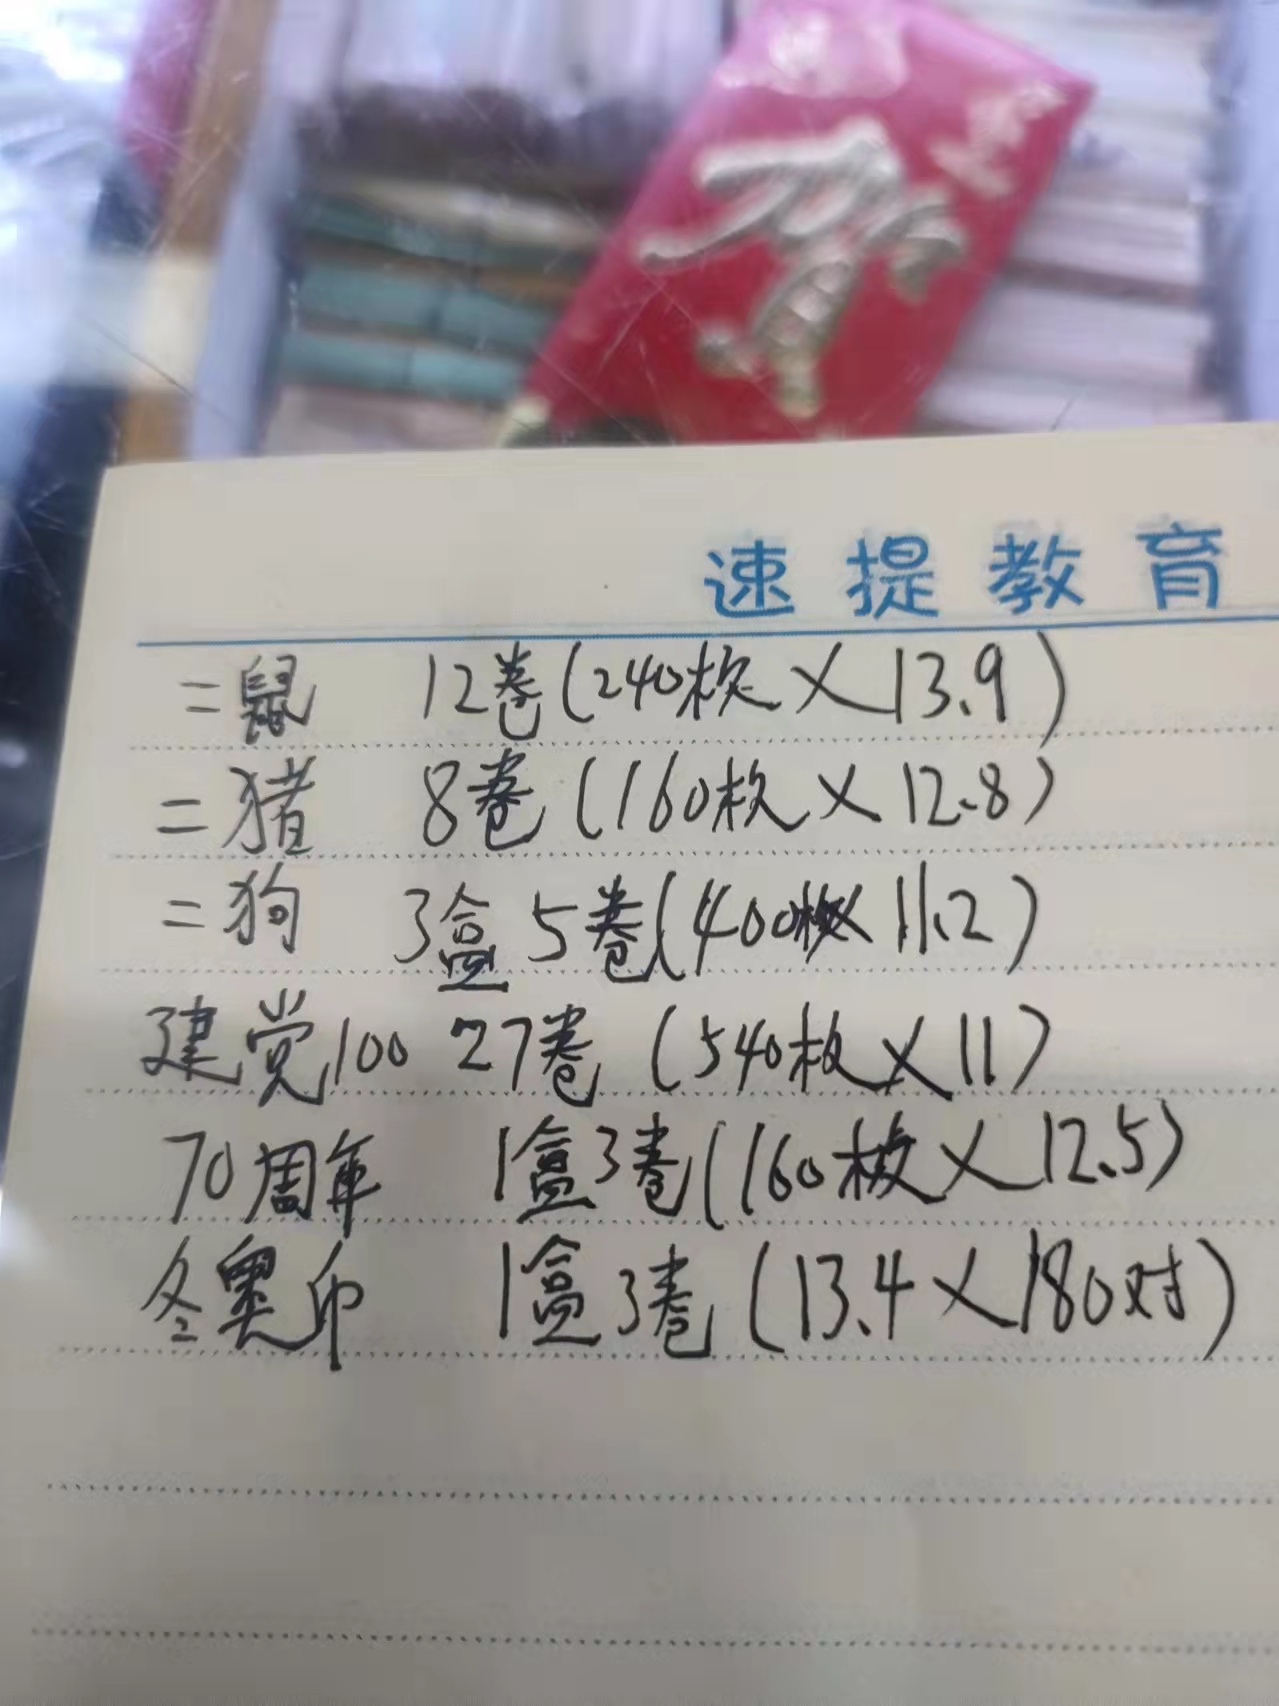 速提教育
二鼠 12卷(240枚×13.9)
二猪 8卷(160枚×12.8)
二狗 3盒5卷(400枚×11.2)
建党100 27卷(540枚×11)
70周年 1盒3卷(160枚×12.5)
冬奥币 1盒3卷(13.4×180对)